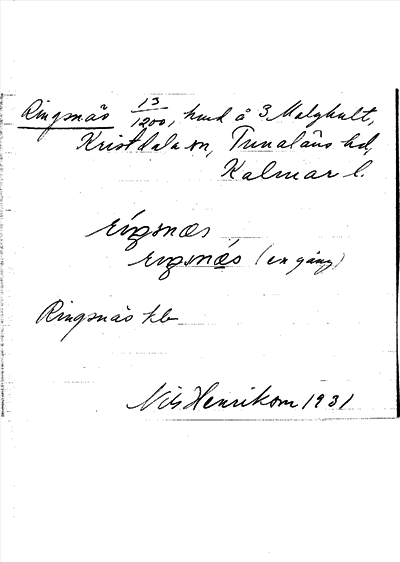 Ringsnäs 13/1200, hmd å 3 Malghult,
Kristdala sn, Tunaläns hd,
Kalmar l.
(en gång)
Ringsnäs
Nils Henrikson 1931